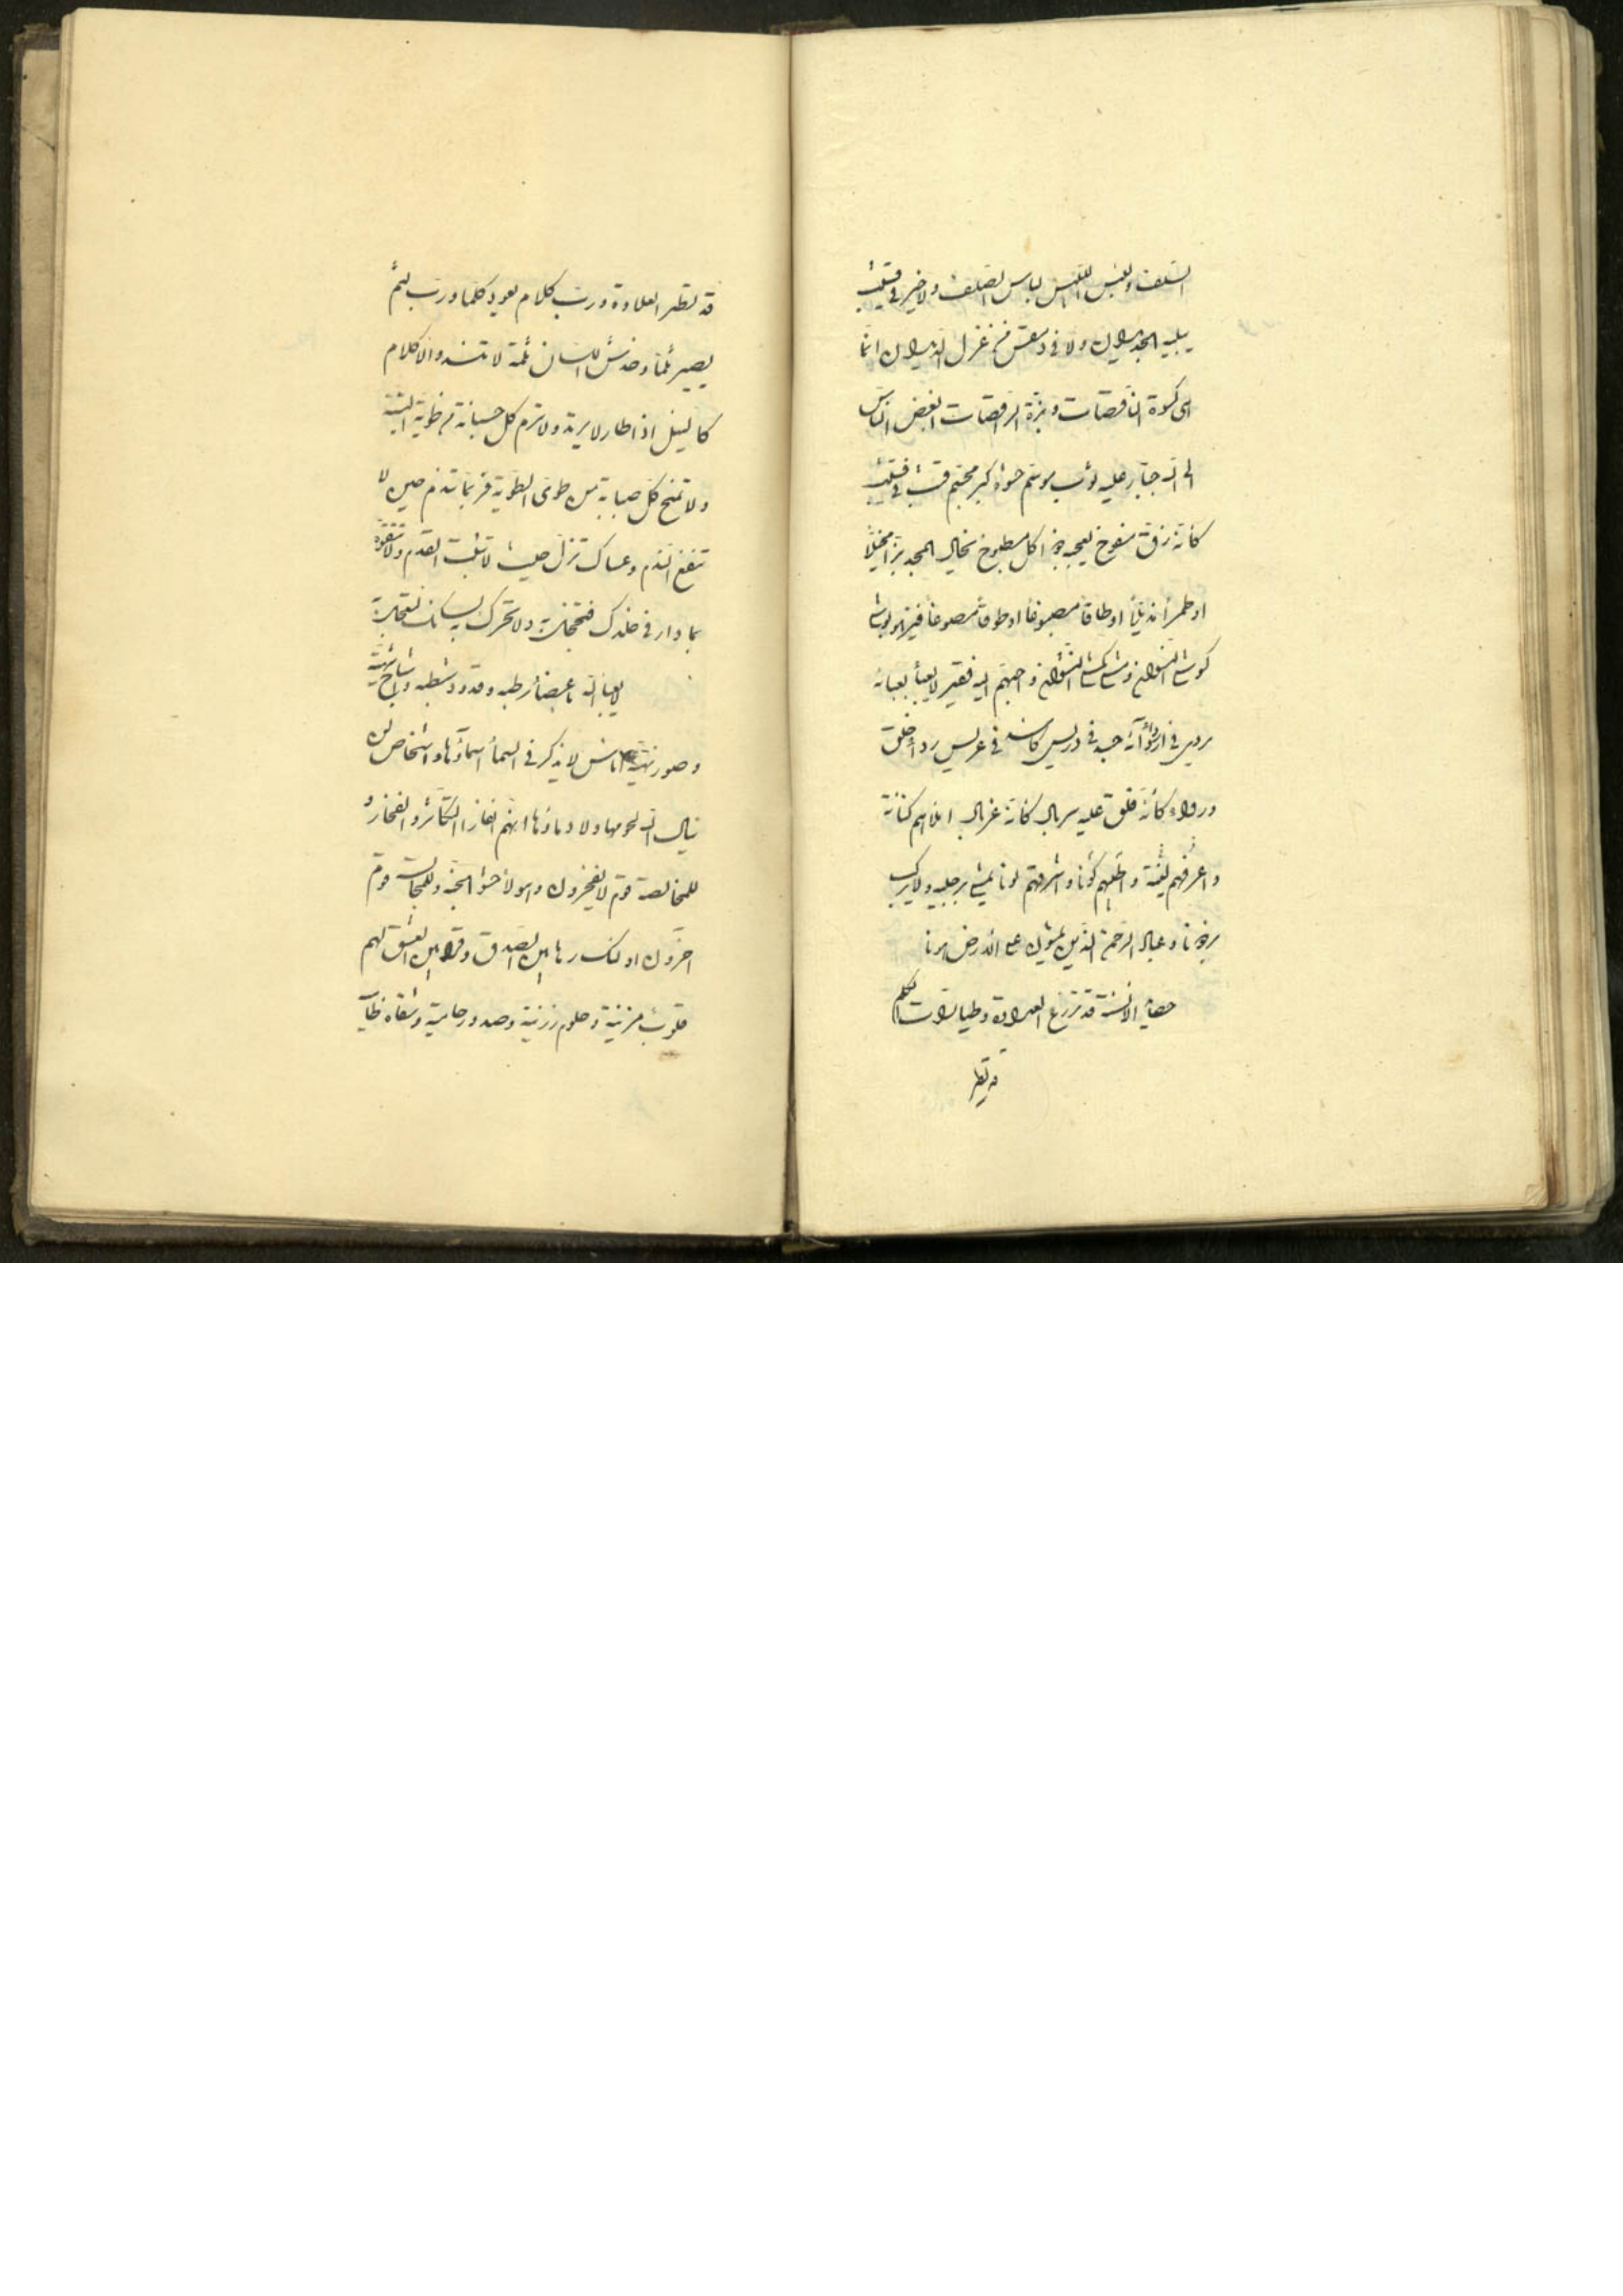 السلف وبئس اللبس لباس الصلف ولا خير في قشيب
يبليه الجديدان ولا في دمقس من غزل الديدان انما
هى كسوة الناقصات وبزة الراقصات ابغض الناس
الى الله جبار عليه ثوب موشم حشوه كبر مجسم قشب في قشيب
كانه زق منفوخ يعجبه اكل مطبوخ يخال المجد بزا مخيلاً
او طمراً مذيلاً او طاقاً مصبوغاً او طوقاً مصوغاً فيزهو بوشاح
كوشاح النسوان ومشاش كمشاش النشوان و احبهم اليه فقير لا يعبأ بعبائه
يرمس في ازار كأنه جسد في دريس كأسد في عريس رداء خلق
ورواء كأنه فلق عليه سربال كانه غربال املاهم كنانة
و اعرفهم لقمة و اطيبهم كونا و اشرفهم لونا يمشى برجليه ولا يركب
برذونا وعباد الرحمن الذين يمشون على الارض هونا
حصائد الالسنة قد تزرع العداوة وطيارات الكلم
قد تقطر
قد تقطر العلاوة ورب كلام يعود كلما ورب لثم
يصير ثلما وخدش اللسان ثلمة لا تنسد والا كلام
كالنبل اذا طار لا يرتد ولا ترم كل حسبانة من طوية النية
ولا تمنح كل صبابة من طوى الطوية فربما تندم حين لا
تنفع الندم وعساك تزل حيث لا تثبت القدم ولا تتفوه
بما دار في خلدك فتخجل به ولا تحرك به لسانك لتعجل به
لا يعبأ الله باعضاء رطبه وقدود شطبه واشباح شهية
وصور بهية اناس لا يذكر في السماء اسماؤها واشخاص لن
ينال الله لحومها ولا دماؤها انهم انفار التكاثر والفخار و
للمخالصة قوم لا يفخرون وهؤلاء حشو الجنة وللمجالسة قوم
اخرون اولئك رهابين الصدق وقرابين العشق لهم
قلوب حزينة وحلوم رزينة وصدور حامية وشفاه ظامية